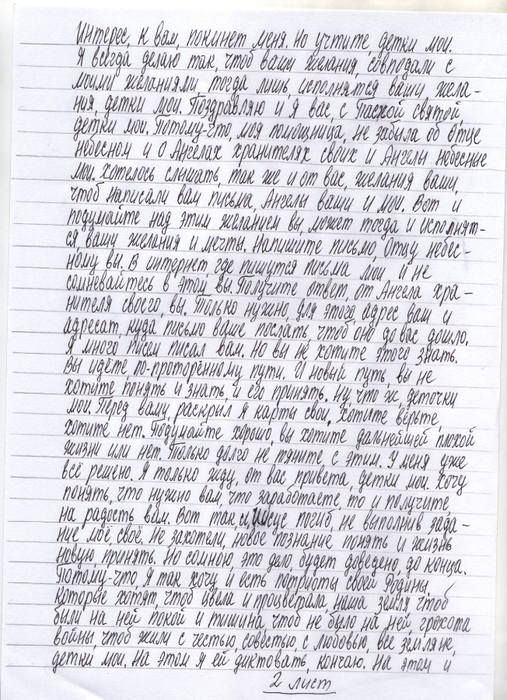 Интерес, к вам, покинет меня. Но учтите, детки мои.
Я всегда делаю так, чтоб ваши желания, совподали с
моими желаниями, тогда лишь, исполнятся ваши, жела-
ния, детки мои. Поздравляю и я вас, с Пасхой святой,
детки мои. Потому-что, моя помощница, не забыла об отце
небесном и о Ангелах хранителях своих и Ангелы небесные
мои. хотелось слышать, так же и от вас, желания ваши,
чтоб написали вам письма, Ангелы ваши и мои. Вот и
подумайте над этим желанием вы, может тогда и исполнят-
ся ваши желания и мечты. Напишите письмо, отцу небес-
ному вы. В интернет где пишутся письма мои и не
сомневайтесь в этом вы. Получите ответ, от Ангела хра-
нителя своего, вы. Только нужно, для этого, адрес ваш и
адресат, куда письмо ваше послать, чтоб оно до вас дошло.
Я много писем писал вам. Но вы не хотите этого знать.
Вы идёте по-проторенному, пути. И новый путь, вы не
хотите понять и знать, и его принять. Ну что ж, деточки
мои. Перед вами, раскрыл я карты свои. Хотите верьте
хотите нет. Подумайте хорошо, вы хотите дальнейшей, плохой
жизни или нет. Только долго не тяните, с этим. У меня уже
всё решено. Я только жду, от вас привета, детки мои. Хочу
понять, что нужно вам, что заработаете, то и получите
на радость вам. Вот так и, Иисус погиб, не выполнив зада-
ние моё, своё. Не захотели, новое познание понять и жизнь
новую принять. Но со мною, это дело, будет доведено, до конца.
Потому-что, я так хочу и есть патриоты своей Родины.
Которые хотят, чтоб цвела и процветала наша земля, чтоб
были на ней покой и тишина, чтоб не было на ней, грохота
войны, чтоб жили с честью, совестью, с любовью, все земляне,
детки мои. На этом я ей диктовать, кончаю. На этом и
2 лист